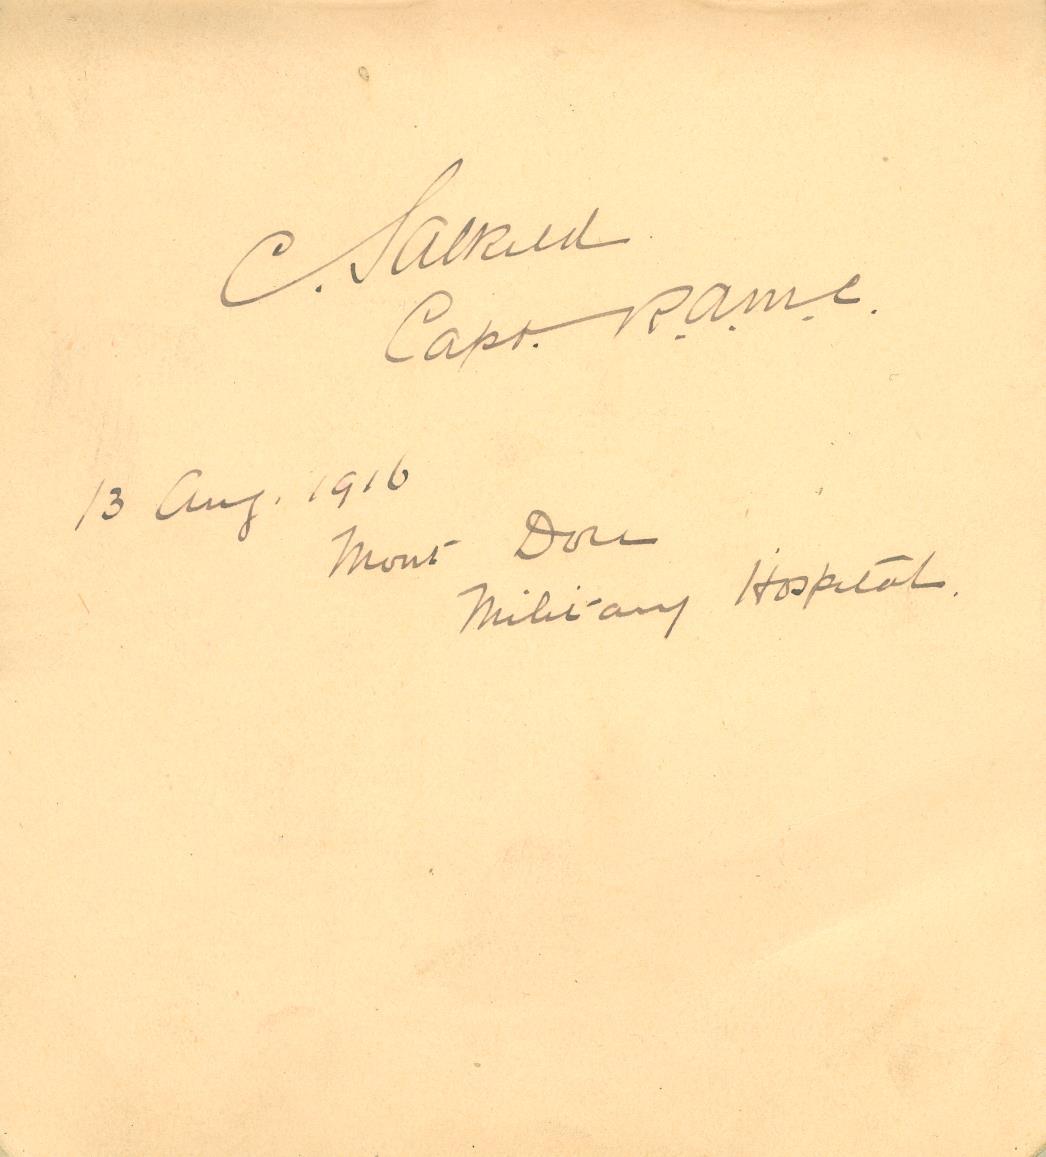 C. Salkield
Capt. R.A.M.C.
13 Aug. 1916
Mont Dore
Military Hospital.